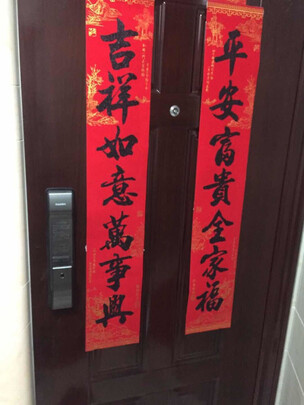 平安富貴全家福
吉祥如意萬事興